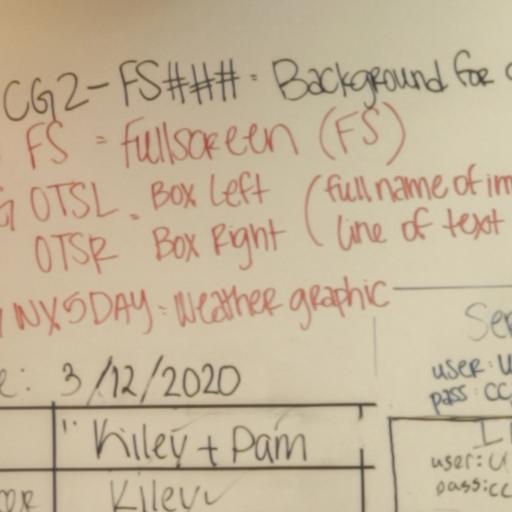 CG2-FS###= Background for
FS = Fullscreen (FS)
OTSL = Box Left (full name of im
OTSR Box Right (line of text
WX5DAY= Weather graphic
Ser
e: 3/12/2020
user: U
pass: cc
" Kiley + Pam
user: U
pass: cc
Kiley